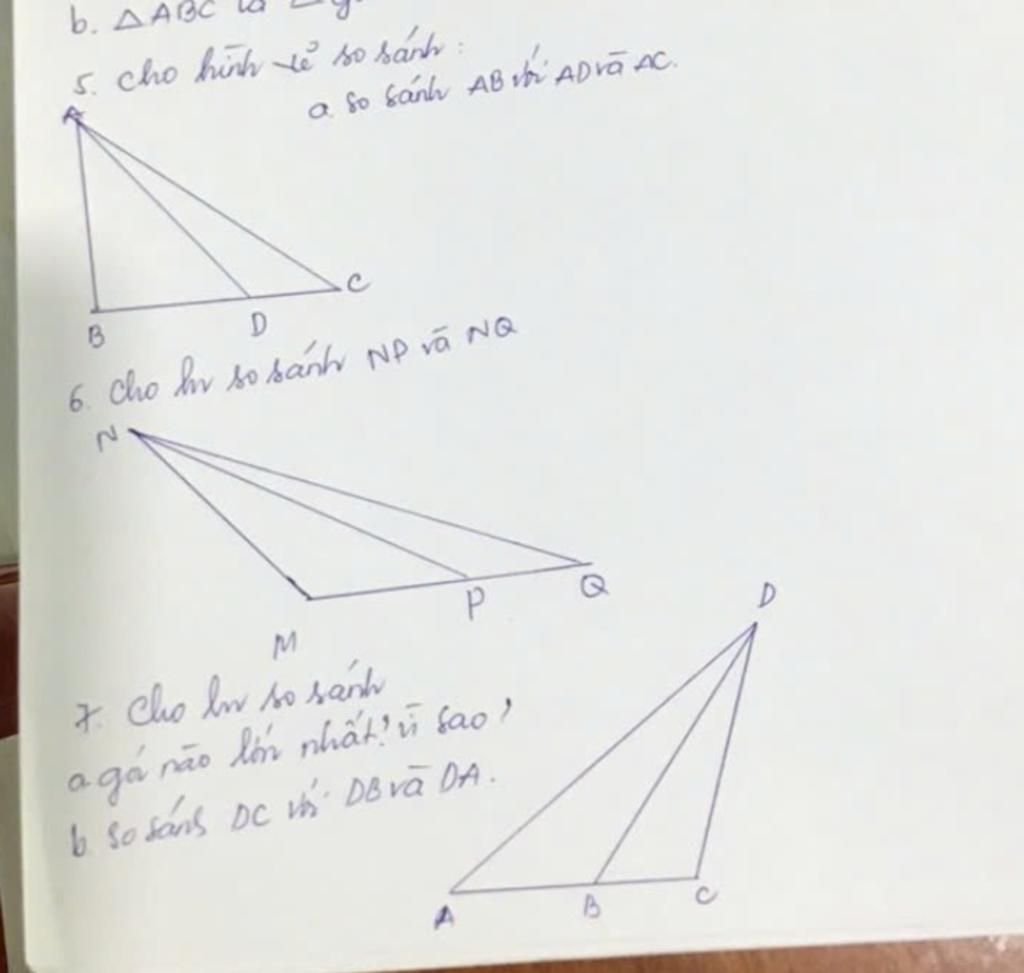 b. △ABC là △
5. cho hình vẽ so sánh:
a. so sánh AB với AD và AC.
A
B
D
C
6. Cho hv so sánh NP và NQ
N
M
P
Q
7. Cho hv so sánh
a góc nào lớn nhất? vì sao?
b so sánh DC với DB và DA.
D
A
B
C